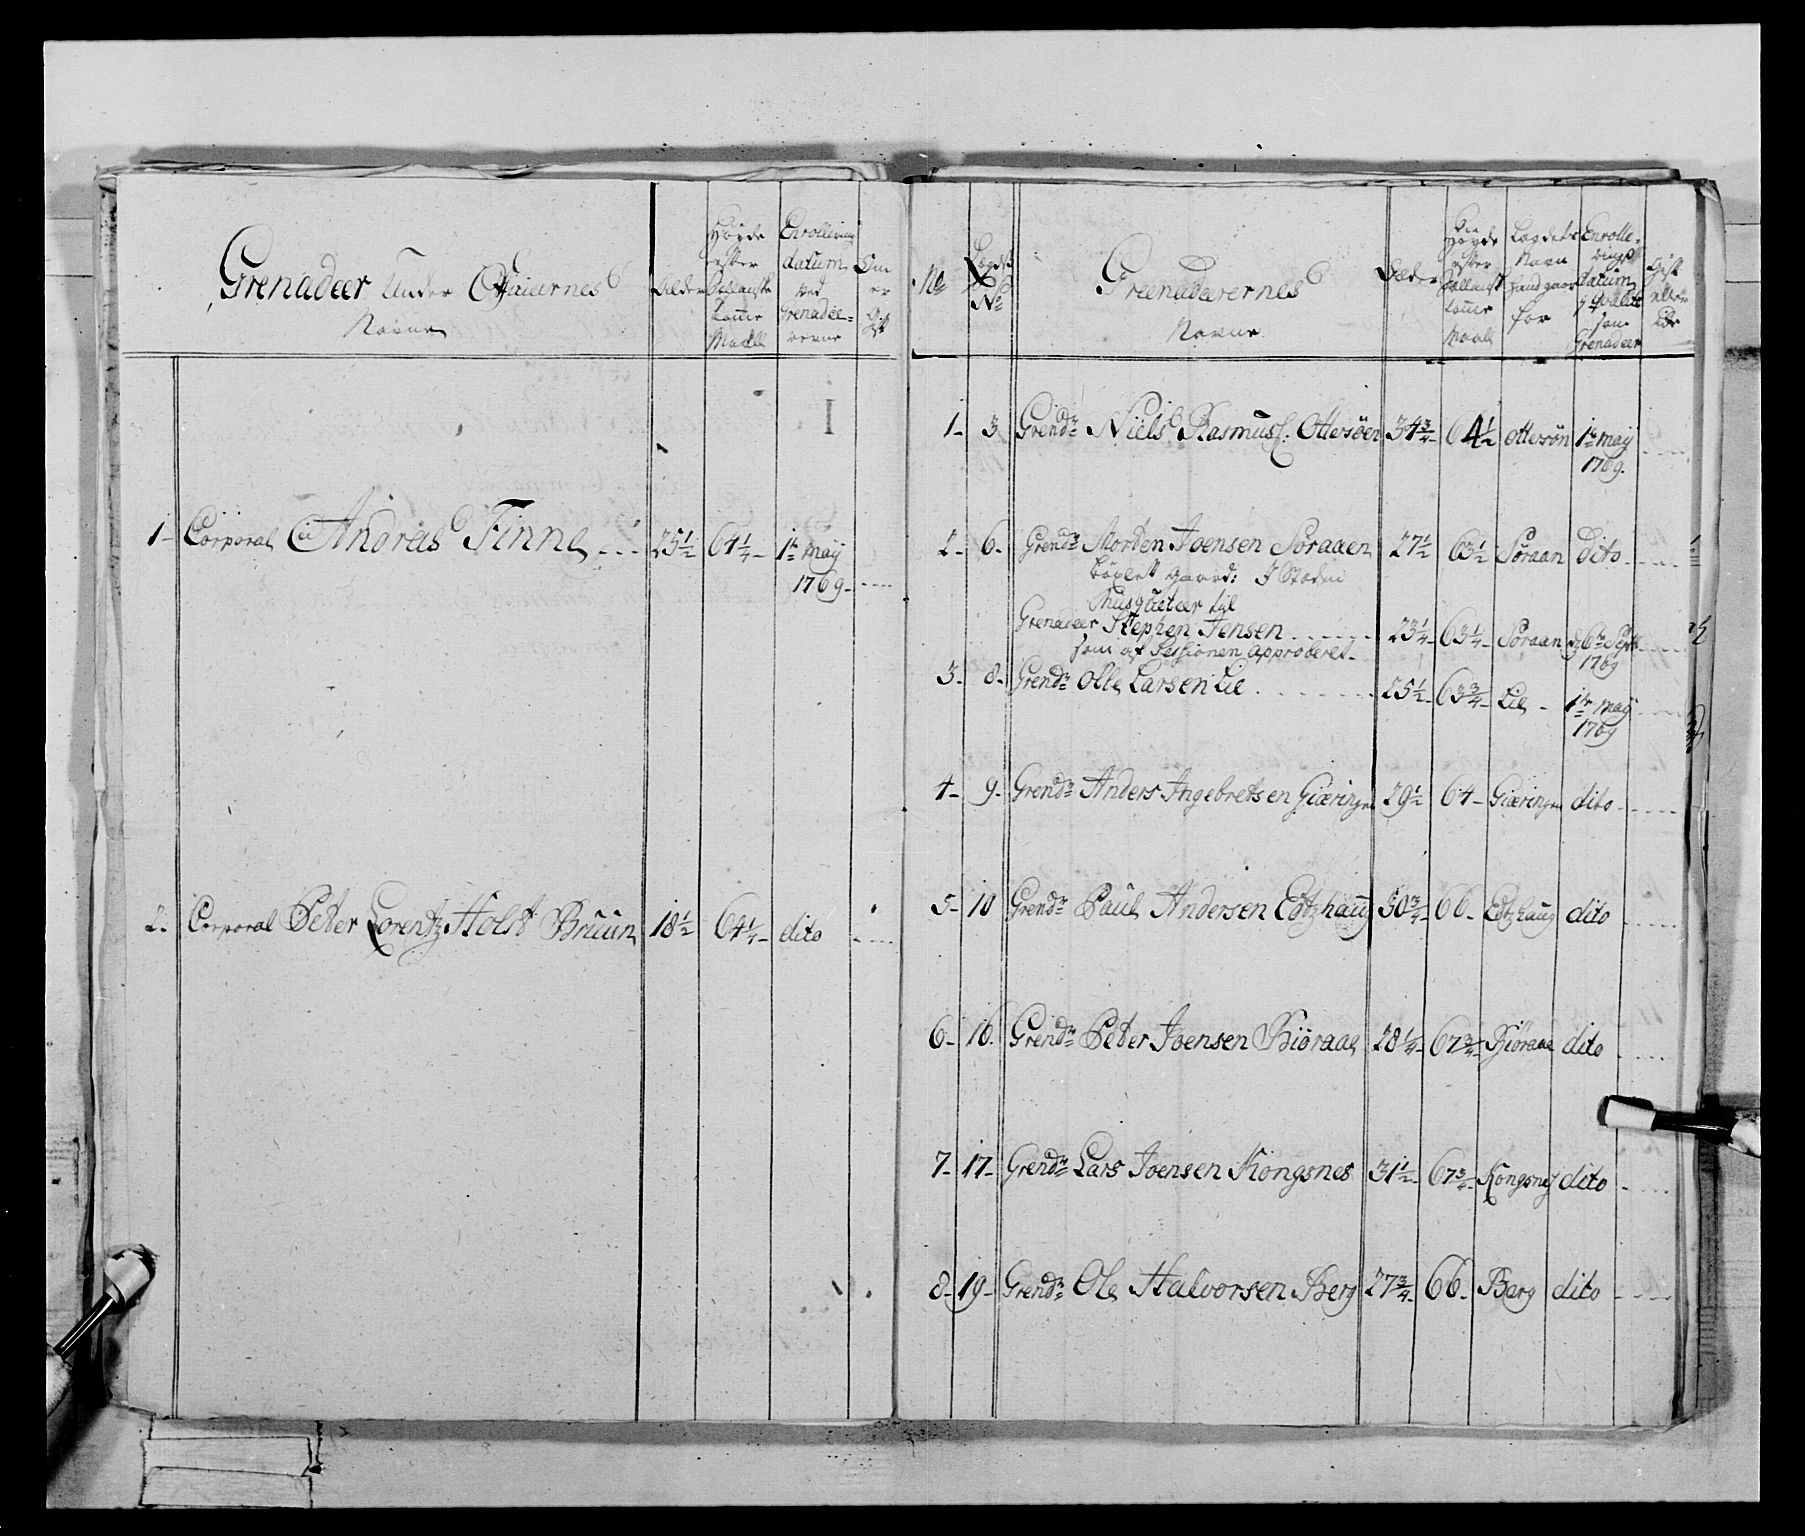 Grenadeer Under Officiernes
Navne
Alder
Høyde
efter
Hollansk
Tomme
Maall
Enrollerings
datum
ved
Grenadee=
rerne
Om
er
Gift
1- Corporal Andreas Finne 25½ 64¼ 1te may
1769
2- Corporal Peter Lorentz Holst Bruun 18½ 64¼ dito
No
Lægds
No
Greenadeerernes
Navne
Alder
Høyde
efter
Hollansk
Tomme
Maal
Lægdets
Navn
hand gaar
for
Enrolle=
rings
datum
i Qvalité
som
Grenadeer
Gift
eller
1- 3 Grendr Niels Rasmuss. Ottersöen 34¾ 64½ Ottersön 1te may
1769.
2- 6- Grendr Morten Joensen Söraaen 27½ 63½ Söraan dito
gaard: I Steden
Musqueteer til
Grenadeer Stephen Jensen 23¼ 63¼ Söraan 6te Septr
1769
som af Sessionen approberet
3- 8- Grendr Olle Larsen Lie 25½ 63¾ Lie 1te may
1769
4- 9- Grendr Anders Ingebretsen Giæringen 29½ 64- Giæringen dito
5- 10 Grendr Paul Andersen Edtzhaug 30¾ 66- Edtzhaug dito
6- 16. Grendr Peter Joensen Biöraae 28¼ 67¾ Biöraae dito
7- 17- Grendr Lars Joensen Kongsnes 31½ 67¾ Kongsnes dito
8- 19- Grendr Ole Halvorsen Berg 27¾ 66- Berg dito